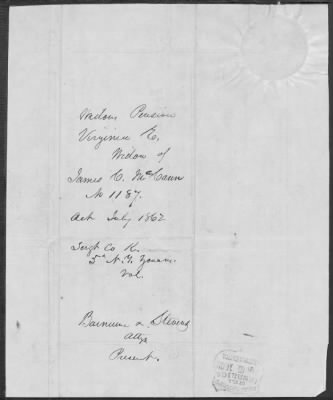 Widows Pension
Virginia E.
Widow of
James C. McCann
No 1187.
Act July 1862
Sergt Co K.
5th N.Y.
Vol.
Barnum & Stevens
Attys
Present.